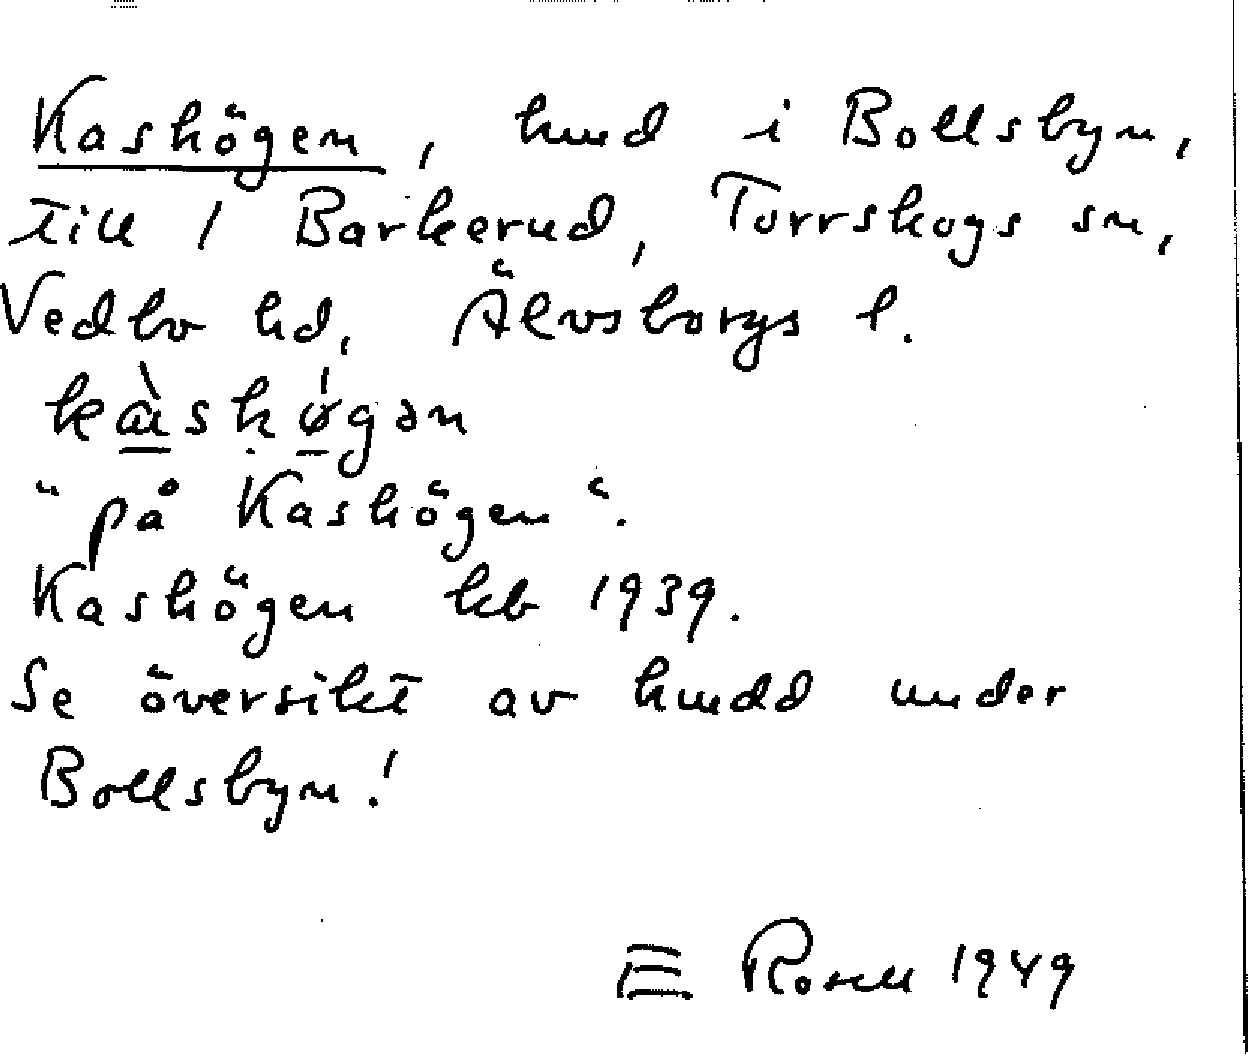 Kashögen, hmd i Bollsbyn,
till 1 Barkerud, Torrskogs sn,
Vedbo hd, Älvsborgs l.
"på Kashögen".
Kashögen kb 1939.
Se översikt av hmdd under
Bollsbyn!
E Rosell 1949